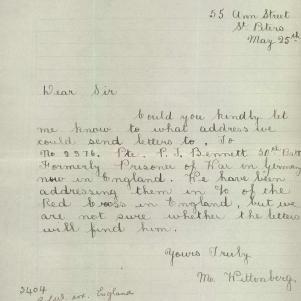 55 Ann Street
St Peters
May 25th
Dear Sir
Could you kindly let
me know to what address we
could send letters to. To
No 2376. Pte. P. J. Bennett 30th Batt
Formerly Prisoner of War in Germany
now in England. We have been
addressing them in c/o of the
Red Cross in England, but we
are not sure whether the letters
will find him.
Yours Truly
M. Wittonberg.
3404
England